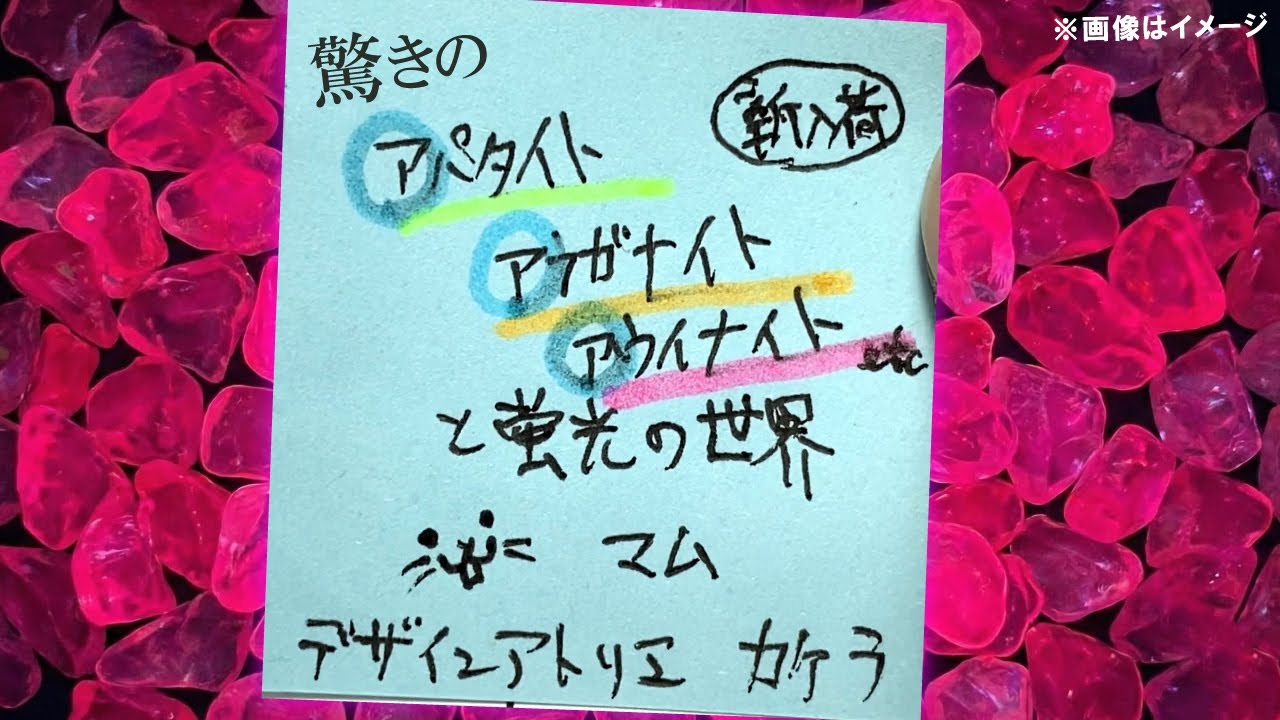 ※画像はイメージ
驚きの
新入荷
アパタイト
アフガナイト
アウイナイト etc
と蛍光の世界
マム
デザインアトリエ カケラ